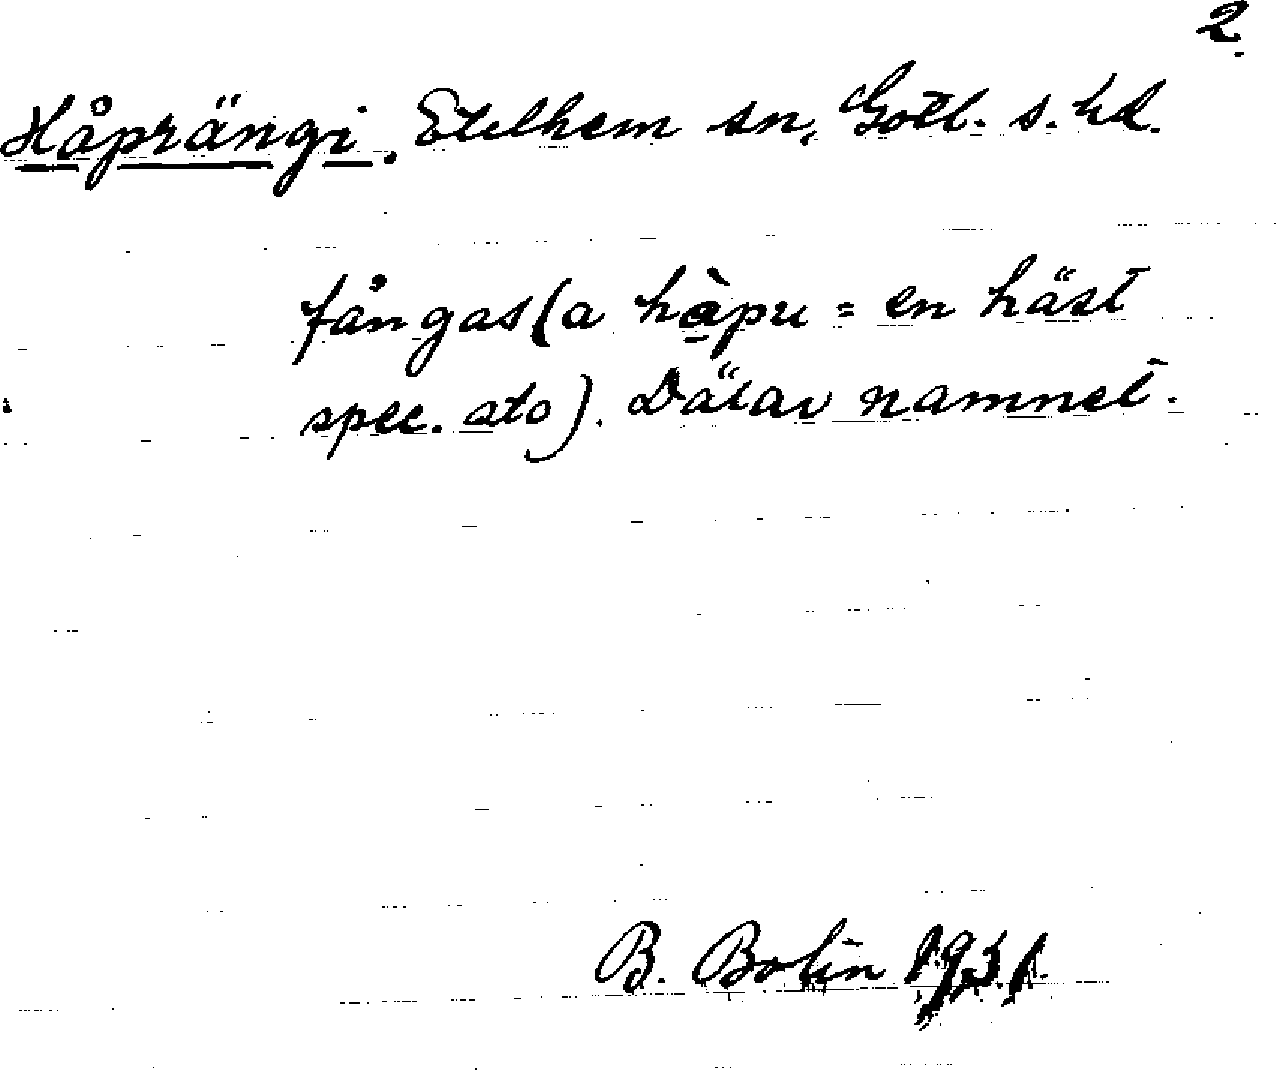 2.
Håprängi. Etelhem sn, Gotl. s. hd.
fångas (a håpu = en häst
spec. sto). Därav namnet.
B. Bolin 1931.